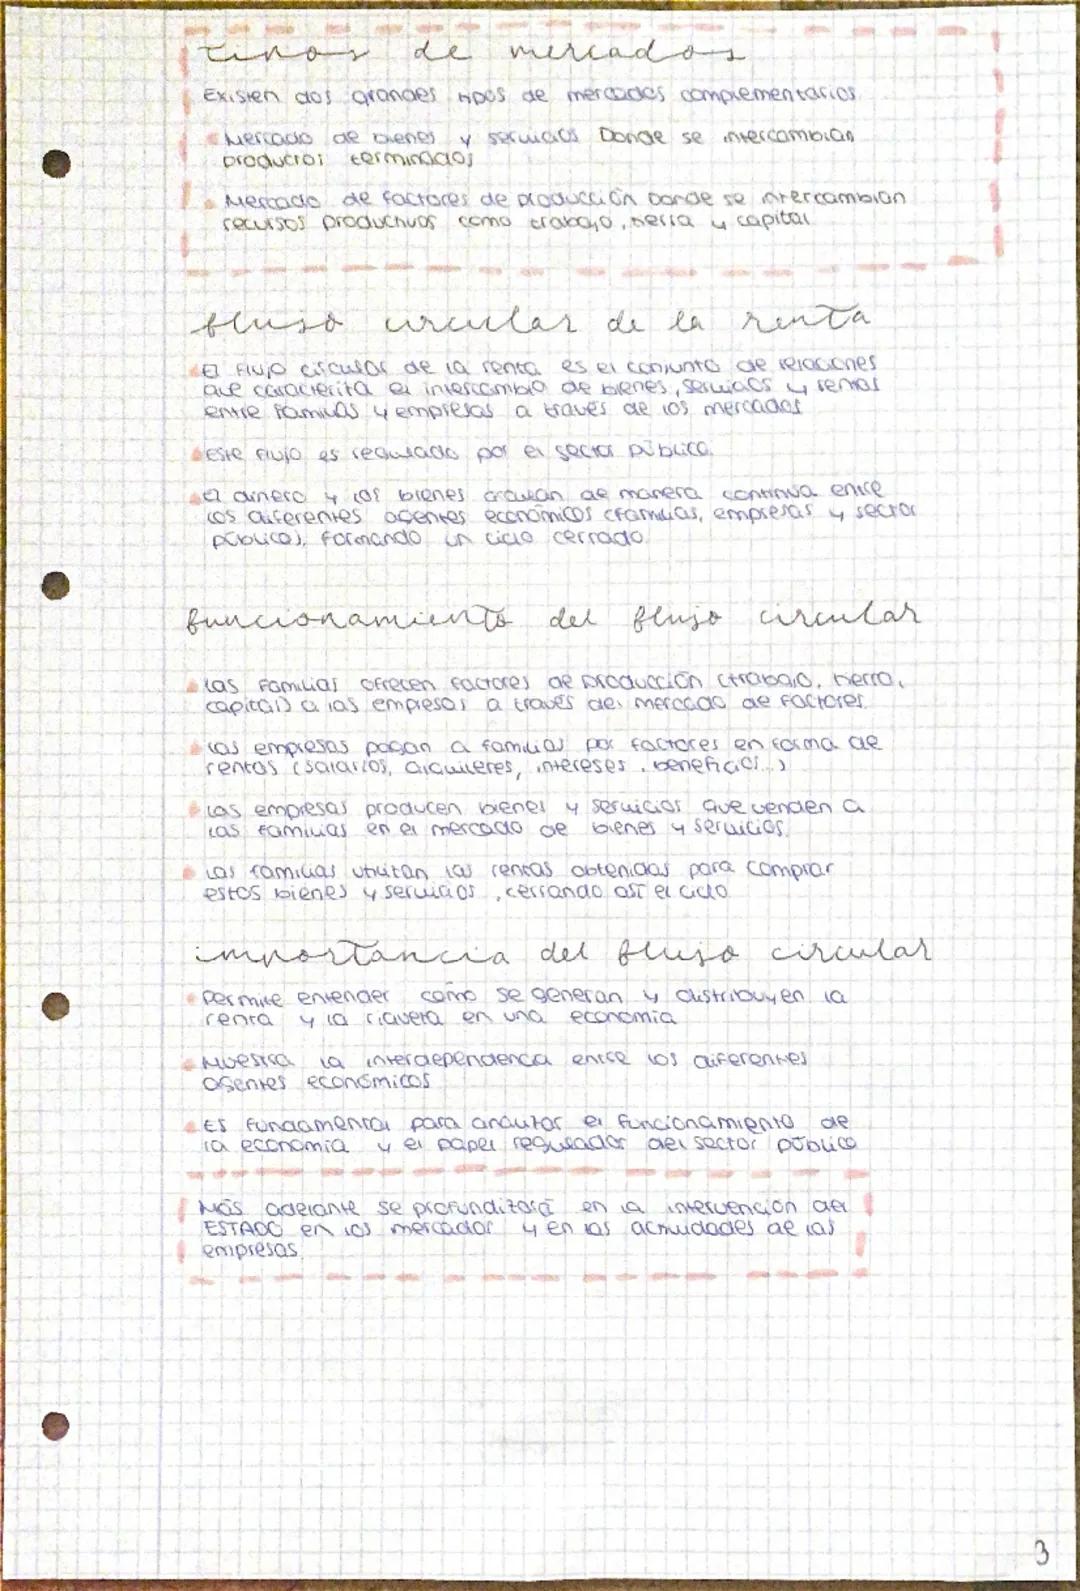 tipos de mercados
Existen dos grandes tipos de mercados complementarios
Mercado de bienes y servicios Donde se intercambian
productos terminados
Mercado de factores de producción Donde se intercambian
recursos productivos como trabajo, tierra y capital
flujo circular de la renta
El flujo circular de la renta es el conjunto de relaciones
que caracteriza el intercambio de bienes, servicios y rentas
entre familias y empresas a través de los mercados
Este flujo es regulado por el sector público.
El dinero y los bienes circulan de manera continua entre
los diferentes agentes económicos (familias, empresas y sector
público), formando un ciclo cerrado.
funcionamiento del flujo circular
Las familias ofrecen factores de producción (trabajo, tierra,
capital) a las empresas a través del mercado de factores.
Las empresas pagan a familias por factores en forma de
rentas (salarios, alquileres, intereses, beneficios...)
Las empresas producen bienes y servicios que venden a
las familias en el mercado de bienes y servicios.
Las familias utilizan las rentas obtenidas para comprar
estos bienes y servicios, cerrando así el ciclo
importancia del flujo circular
Permite entender cómo se generan y distribuyen la
renta y la riqueza en una economía
Muestra la interdependencia entre los diferentes
agentes económicos
Es fundamental para analizar el funcionamiento de
la economía y el papel regulador del sector público
Más adelante se profundizará en la intervención del
ESTADO en los mercados y en las actividades de las
empresas.
3